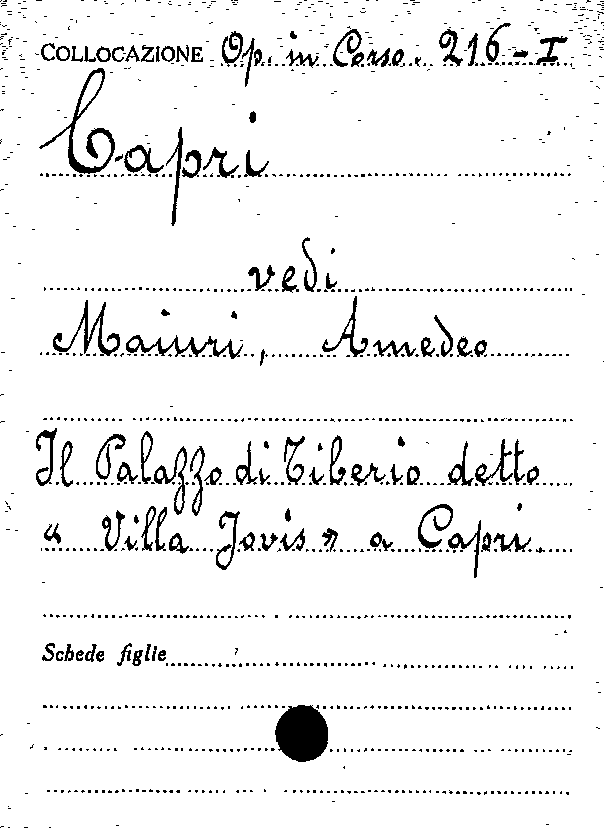 COLLOCAZIONE Op. in Corso. 216-I
Capri
vedi
Maiuri, Amedeo
Il Palazzo di Tiberio detto
« Villa Jovis » a Capri.
Schede figlie